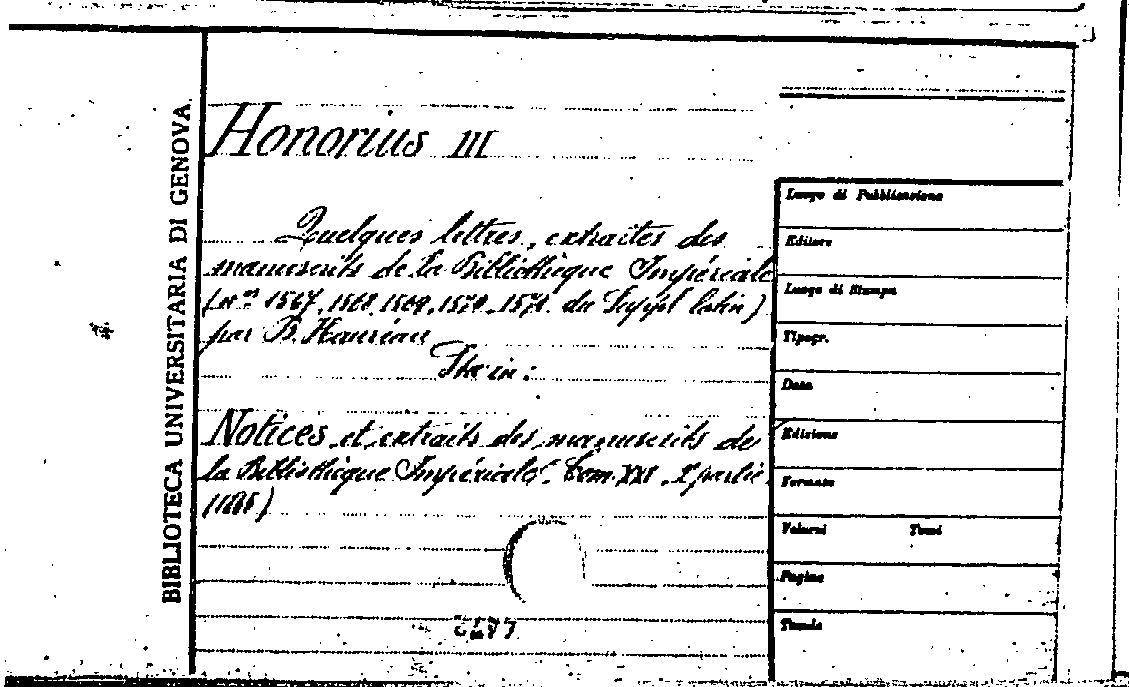 BIBLIOTECA UNIVERSITARIA DI GENOVA
Honorius III
Quelques lettres, extraites des
manuscrits de la Bibliothèque Impériale
(nos 1567, 1568, 1569, 1570, 1571 du Suppl latin)
par B. Hauréau
Sta in:
Notices et extraits des manuscrits de
la Bibliothèque Impériale. Tom. XXI, 2e partie
Luogo di Pubblicazione
Editore
Luogo di Stampa
Tipogr.
Data
Edizione
Formato
Volumi Tomi
Pagine
Tavole